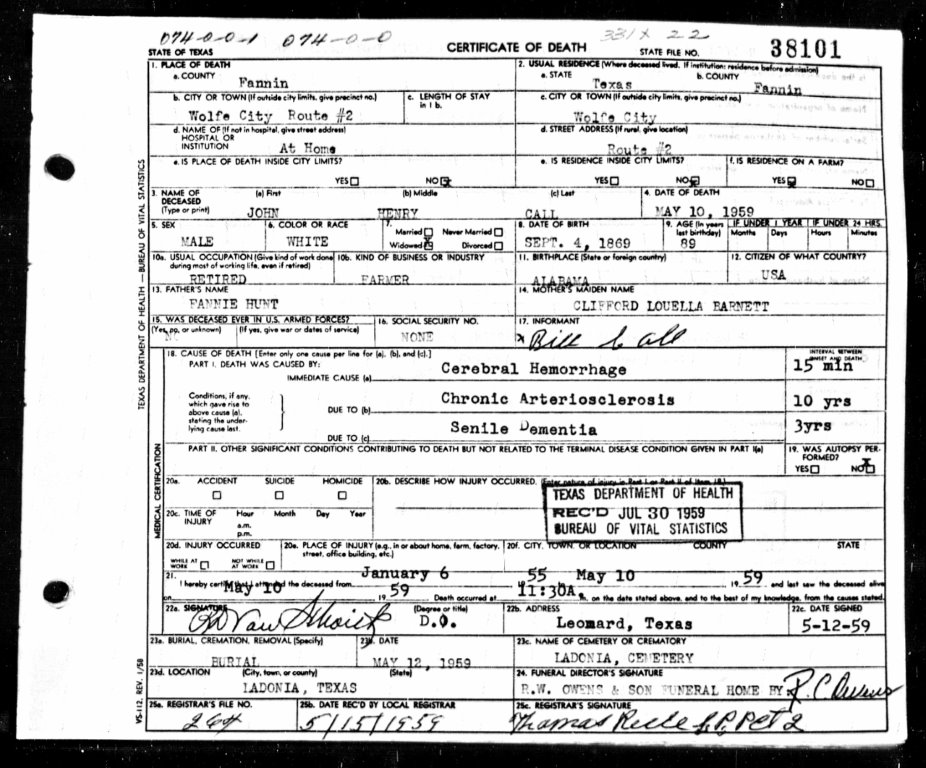 074-0-0-1 074-0-0 331X 22
STATE OF TEXAS CERTIFICATE OF DEATH STATE FILE NO. 38101
1. PLACE OF DEATH 2. USUAL RESIDENCE (Where deceased lived. If institution: residence before admission)
a. COUNTY Fannin a. STATE Texas b. COUNTY Fannin
b. CITY OR TOWN (If outside city limits, give precinct no.) c. LENGTH OF STAY in 1 b. c. CITY OR TOWN (If outside city limits, give precinct no.)
Wolfe City Route #2 Wolfe City
d. NAME OF (If not in hospital, give street address) HOSPITAL OR INSTITUTION At Home d. STREET ADDRESS (If rural, give location) Route #2
e. IS PLACE OF DEATH INSIDE CITY LIMITS? e. IS RESIDENCE INSIDE CITY LIMITS? f. IS RESIDENCE ON A FARM?
YES NO YES NO YES NO
3. NAME OF DECEASED (Type or print) (a) First (b) Middle (c) Last 4. DATE OF DEATH
JOHN HENRY CALL MAY 10, 1959
5. SEX 6. COLOR OR RACE 7. Married Never Married Widowed Divorced 8. DATE OF BIRTH 9. AGE (In years last birthday) IF UNDER 1 YEAR Months Days IF UNDER 24 HRS. Hours Minutes
MALE WHITE SEPT. 4, 1869 89
10a. USUAL OCCUPATION (Give kind of work done during most of working life, even if retired) 10b. KIND OF BUSINESS OR INDUSTRY 11. BIRTHPLACE (State or foreign country) 12. CITIZEN OF WHAT COUNTRY?
RETIRED FARMER ALABAMA USA
13. FATHER'S NAME 14. MOTHER'S MAIDEN NAME
FANNIE HUNT CLIFFORD LOUELLA BARNETT
15. WAS DECEASED EVER IN U.S. ARMED FORCES? 16. SOCIAL SECURITY NO. 17. INFORMANT
(Yes, no, or unknown) (If yes, give war or dates of service)
NO NONE x Bill Call
18. CAUSE OF DEATH [Enter only one cause per line for (a), (b), and (c).] INTERVAL BETWEEN ONSET AND DEATH
PART I. DEATH WAS CAUSED BY:
IMMEDIATE CAUSE (a) Cerebral Hemorrhage 15 min
Conditions, if any, which gave rise to above cause (a), stating the underlying cause last.
DUE TO (b) Chronic Arteriosclerosis 10 yrs
DUE TO (c) Senile Dementia 3yrs
PART II. OTHER SIGNIFICANT CONDITIONS CONTRIBUTING TO DEATH BUT NOT RELATED TO THE TERMINAL DISEASE CONDITION GIVEN IN PART I(a) 19. WAS AUTOPSY PERFORMED? YES NO
20a. ACCIDENT SUICIDE HOMICIDE 20b. DESCRIBE HOW INJURY OCCURRED. (Enter nature of injury in Part I or Part II of Item 18.)
TEXAS DEPARTMENT OF HEALTH
REC'D JUL 30 1959
BUREAU OF VITAL STATISTICS
20c. TIME OF INJURY Hour a.m. p.m. Month Day Year
20d. INJURY OCCURRED WHILE AT WORK NOT WHILE AT WORK 20e. PLACE OF INJURY (e.g., in or about home, farm, factory, street, office building, etc.) 20f. CITY, TOWN, OR LOCATION COUNTY STATE
21. I hereby certify that I attended the deceased from January 6 55 May 10 19 59 and last saw the deceased alive
on May 10 19 59 Death occurred at 11:30A m. on the date stated above, and to the best of my knowledge, from the causes stated.
22a. SIGNATURE (Degree or title) D.O. 22b. ADDRESS Leomard, Texas 22c. DATE SIGNED 5-12-59
23a. BURIAL, CREMATION, REMOVAL (Specify) 23b. DATE 23c. NAME OF CEMETERY OR CREMATORY
BURIAL MAY 12, 1959 LADONIA, CEMETERY
23d. LOCATION (City, town, or county) (State) 24. FUNERAL DIRECTOR'S SIGNATURE
LADONIA, TEXAS R.W. OWENS & SON FUNERAL HOME BY R. C. Owens
25a. REGISTRAR'S FILE NO. 25b. DATE REC'D BY LOCAL REGISTRAR 25c. REGISTRAR'S SIGNATURE
5/15/1959 Thomas
TEXAS DEPARTMENT OF HEALTH—BUREAU OF VITAL STATISTICS
MEDICAL CERTIFICATION
VS-112, REV. 1/58